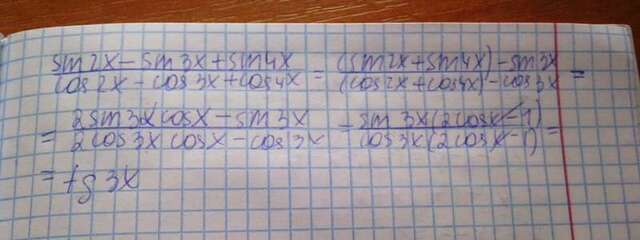 (sin2x - sin3x + sin4x)/(cos2x - cos3x + cos4x) = ((sin2x + sin4x) - sin3x)/((cos2x + cos4x) - cos3x) =
= (2sin3x cosx - sin3x)/(2cos3x cosx - cos3x) = (sin3x(2cosx - 1))/(cos3x(2cosx - 1)) =
= tg3x